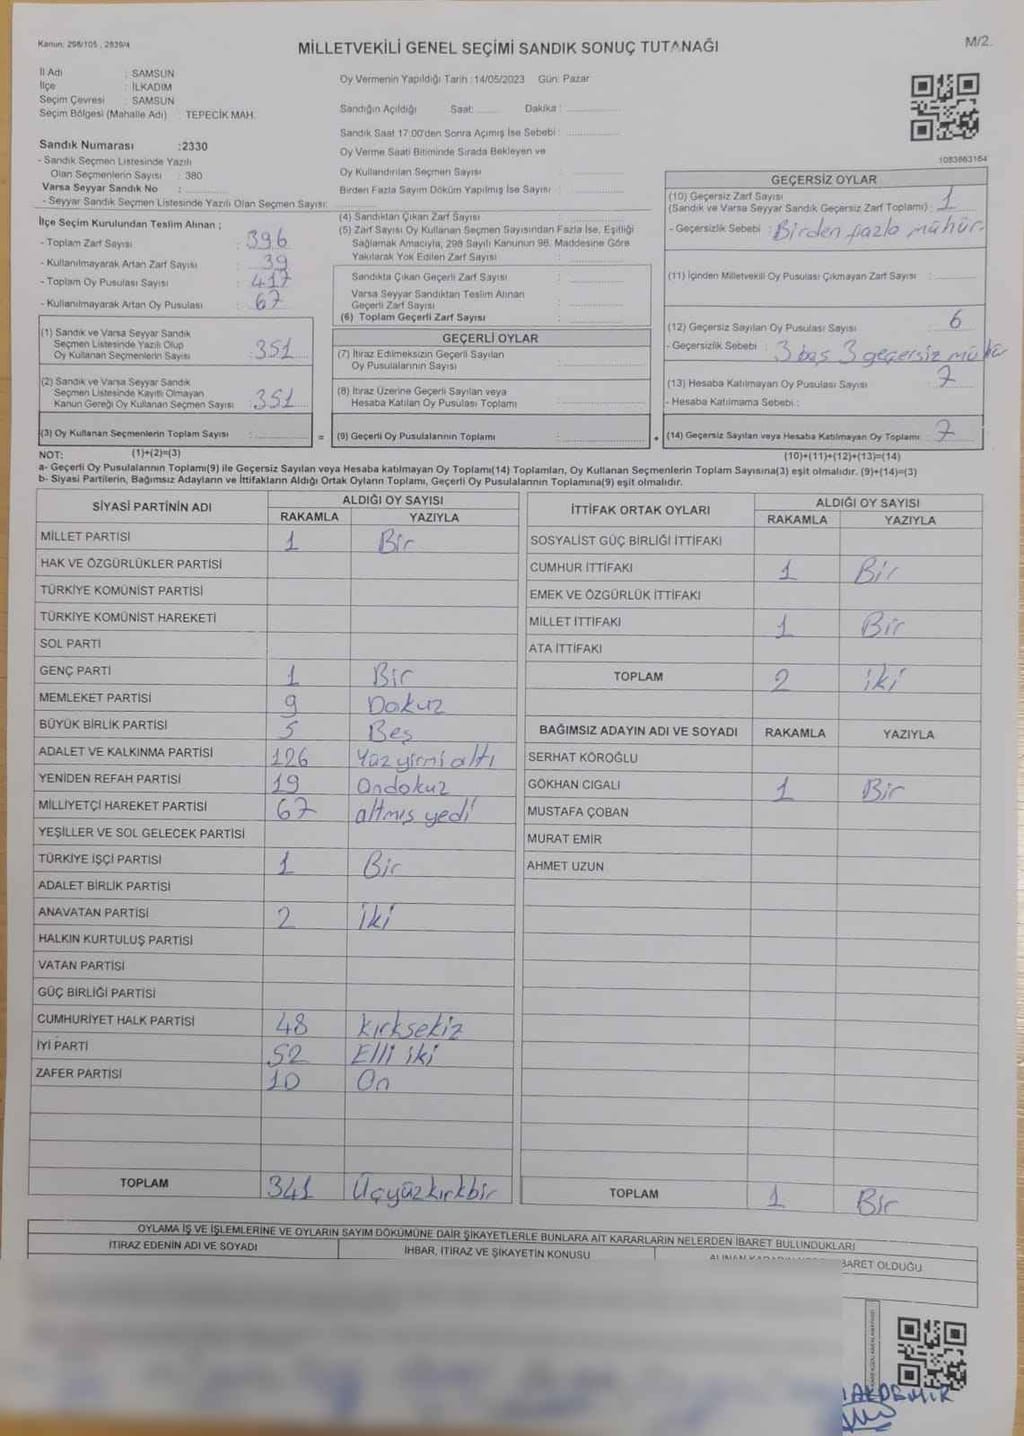 Kanun: 298/105 , 2839/4
MİLLETVEKİLİ GENEL SEÇİMİ SANDIK SONUÇ TUTANAĞI
M/2.
İl Adı : SAMSUN
İlçe : İLKADIM
Seçim Çevresi : SAMSUN
Seçim Bölgesi (Mahalle Adı) : TEPECİK MAH.
Sandık Numarası :2330
- Sandık Seçmen Listesinde Yazılı
Olan Seçmenlerin Sayısı : 380
Varsa Seyyar Sandık No :
- Seyyar Sandık Seçmen Listesinde Yazılı Olan Seçmen Sayısı:
Oy Vermenin Yapıldığı Tarih :14/05/2023 Gün: Pazar
Sandığın Açıldığı Saat: Dakika :
Sandık Saat 17:00'den Sonra Açımış İse Sebebi :
Oy Verme Saati Bitiminde Sırada Bekleyen ve
Oy Kullandırılan Seçmen Sayısı :
Birden Fazla Sayım Döküm Yapılmış İse Sayısı :
1083863164
İlçe Seçim Kurulundan Teslim Alınan ;
- Toplam Zarf Sayısı : 396
- Kullanılmayarak Artan Zarf Sayısı : 39
- Toplam Oy Pusulası Sayısı : 417
- Kullanılmayarak Artan Oy Pusulası : 67
(1) Sandık ve Varsa Seyyar Sandık
Seçmen Listesinde Yazılı Olup
Oy Kullanan Seçmenlerin Sayısı : 351
(2) Sandık ve Varsa Seyyar Sandık
Seçmen Listesinde Kayıtlı Olmayan
Kanun Gereği Oy Kullanan Seçmen Sayısı : 351
(3) Oy Kullanan Seçmenlerin Toplam Sayısı :
(4) Sandıktan Çıkan Zarf Sayısı :
(5) Zarf Sayısı Oy Kullanan Seçmen Sayısından Fazla İse, Eşitliği
Sağlamak Amacıyla, 298 Sayılı Kanunun 98. Maddesine Göre
Yakılarak Yok Edilen Zarf Sayısı :
Sandıkta Çıkan Geçerli Zarf Sayısı :
Varsa Seyyar Sandıktan Teslim Alınan
Geçerli Zarf Sayısı :
(6) Toplam Geçerli Zarf Sayısı :
GEÇERLİ OYLAR
(7) İtiraz Edilmeksizin Geçerli Sayılan
Oy Pusulalarının Sayısı :
(8) İtiraz Üzerine Geçerli Sayılan veya
Hesaba Katılan Oy Pusulası Toplamı :
= (9) Geçerli Oy Pusulalarının Toplamı :
GEÇERSİZ OYLAR
(10) Geçersiz Zarf Sayısı
(Sandık ve Varsa Seyyar Sandık Geçersiz Zarf Toplamı) : 1
- Geçersizlik Sebebi : Birden fazla mühür.
(11) İçinden Milletvekili Oy Pusulası Çıkmayan Zarf Sayısı :
(12) Geçersiz Sayılan Oy Pusulası Sayısı : 6
- Geçersizlik Sebebi : 3 boş 3 geçersiz mühür
(13) Hesaba Katılmayan Oy Pusulası Sayısı : 7
- Hesaba Katılmama Sebebi :
+ (14) Geçersiz Sayılan veya Hesaba Katılmayan Oy Toplamı : 7
NOT: (1)+(2)=(3) (10)+(11)+(12)+(13)=(14)
a- Geçerli Oy Pusulalarının Toplamı(9) ile Geçersiz Sayılan veya Hesaba katılmayan Oy Toplamı(14) Toplamları, Oy Kullanan Seçmenlerin Toplam Sayısına(3) eşit olmalıdır. (9)+(14)=(3)
b- Siyasi Partilerin, Bağımsız Adayların ve İttifakların Aldığı Ortak Oyların Toplamı, Geçerli Oy Pusulalarının Toplamına(9) eşit olmalıdır.
SİYASİ PARTİNİN ADI ALDIĞI OY SAYISI
RAKAMLA YAZIYLA
MİLLET PARTİSİ 1 Bir
HAK VE ÖZGÜRLÜKLER PARTİSİ
TÜRKİYE KOMÜNİST PARTİSİ
TÜRKİYE KOMÜNİST HAREKETİ
SOL PARTİ
GENÇ PARTİ 1 Bir
MEMLEKET PARTİSİ 9 Dokuz
BÜYÜK BİRLİK PARTİSİ 5 Beş
ADALET VE KALKINMA PARTİSİ 126 Yüz yirmi altı
YENİDEN REFAH PARTİSİ 19 Ondokuz
MİLLİYETÇİ HAREKET PARTİSİ 67 altmış yedi
YEŞİLLER VE SOL GELECEK PARTİSİ
TÜRKİYE İŞÇİ PARTİSİ 1 Bir
ADALET BİRLİK PARTİSİ
ANAVATAN PARTİSİ 2 iki
HALKIN KURTULUŞ PARTİSİ
VATAN PARTİSİ
GÜÇ BİRLİĞİ PARTİSİ
CUMHURİYET HALK PARTİSİ 48 kırksekiz
İYİ PARTİ 52 Elli iki
ZAFER PARTİSİ 10 On
TOPLAM 341 Üçyüzkırkbir
İTTİFAK ORTAK OYLARI ALDIĞI OY SAYISI
RAKAMLA YAZIYLA
SOSYALİST GÜÇ BİRLİĞİ İTTİFAKI
CUMHUR İTTİFAKI 1 Bir
EMEK VE ÖZGÜRLÜK İTTİFAKI
MİLLET İTTİFAKI 1 Bir
ATA İTTİFAKI
TOPLAM 2 iki
BAĞIMSIZ ADAYIN ADI VE SOYADI RAKAMLA YAZIYLA
SERHAT KÖROĞLU
GÖKHAN CIGALI 1 Bir
MUSTAFA ÇOBAN
MURAT EMİR
AHMET UZUN
TOPLAM 1 Bir
OYLAMA İŞ VE İŞLEMLERİNE VE OYLARIN SAYIM DÖKÜMÜNE DAİR ŞİKAYETLERLE BUNLARA AİT KARARLARIN NELERDEN İBARET BULUNDUKLARI
İTİRAZ EDENİN ADI VE SOYADI İHBAR, İTİRAZ VE ŞİKAYETİN KONUSU
BARET OLDUĞU
AKDEMİR